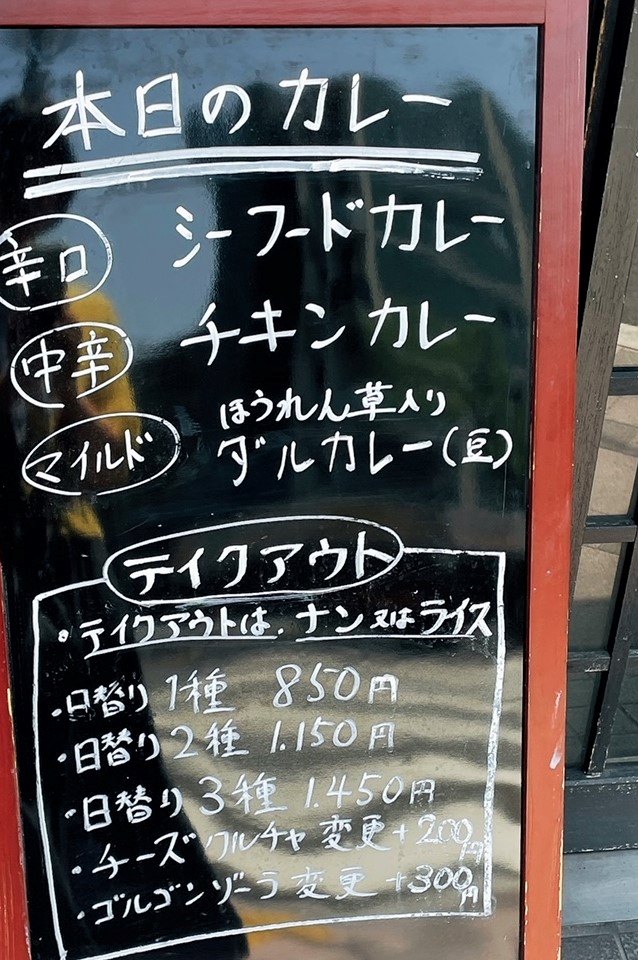 本日のカレー
辛口 シーフードカレー
中辛 チキンカレー
ほうれん草入り
マイルド ダルカレー(豆)
テイクアウト
・テイクアウトは、ナン又はライス
・日替り1種 850円
・日替り2種 1.150円
・日替り3種 1.450円
・チーズクルチャ変更+200円
・ゴルゴンゾーラ変更+300円